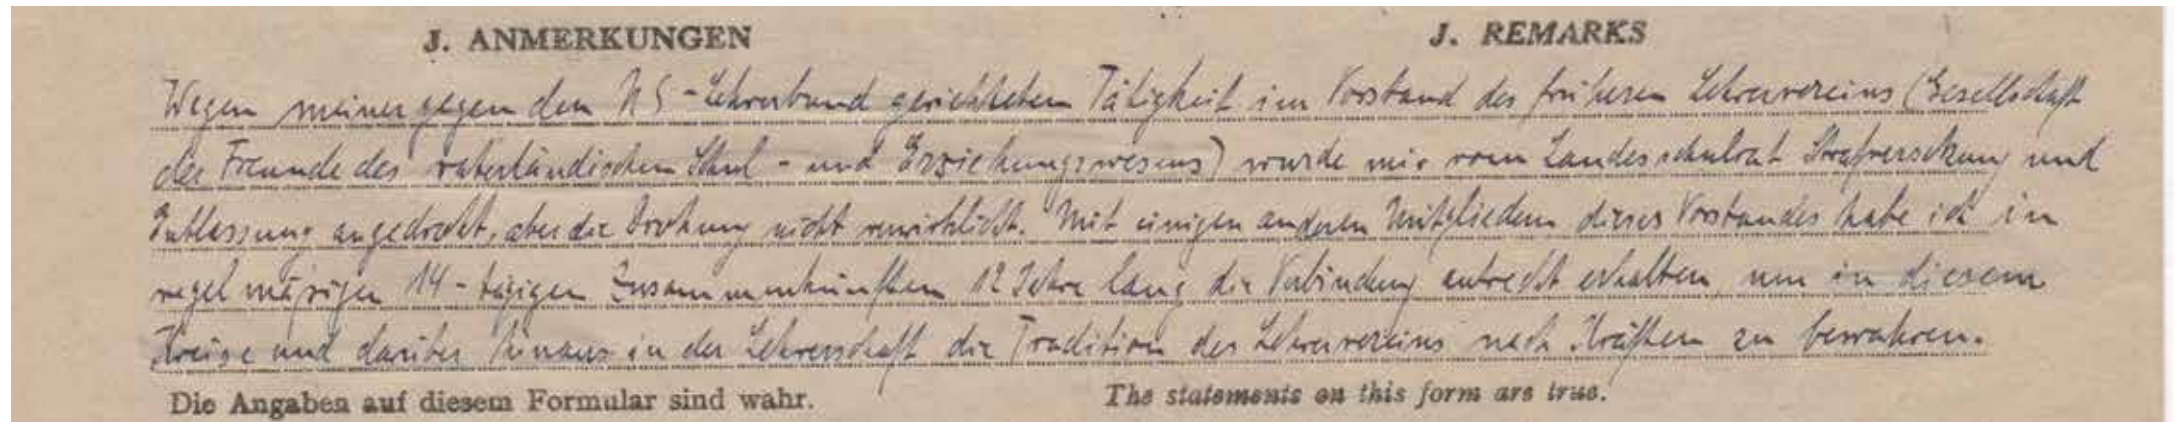 J. ANMERKUNGEN J. REMARKS
Wegen meiner gegen den NS-Lehrerbund gerichteten Tätigkeit im Vorstand des früheren Lehrervereins (Gesellschaft
der Freunde des vaterländischen Schul- und Erziehungswesens) wurde mir vom Landesschulrat Strafversetzung und
Entlassung angedroht, aber die Drohung nicht verwirklicht. Mit einigen anderen Mitgliedern dieses Vorstandes habe ich in
regelmäßigen 14-tägigen Zusammenkünften 12 Jahre lang die Verbindung aufrecht erhalten, um in diesem
Kreise und darüber hinaus in der Lehrerschaft die Tradition des Lehrervereins nach Kräften zu bewahren.
Die Angaben auf diesem Formular sind wahr. The statements on this form are true.